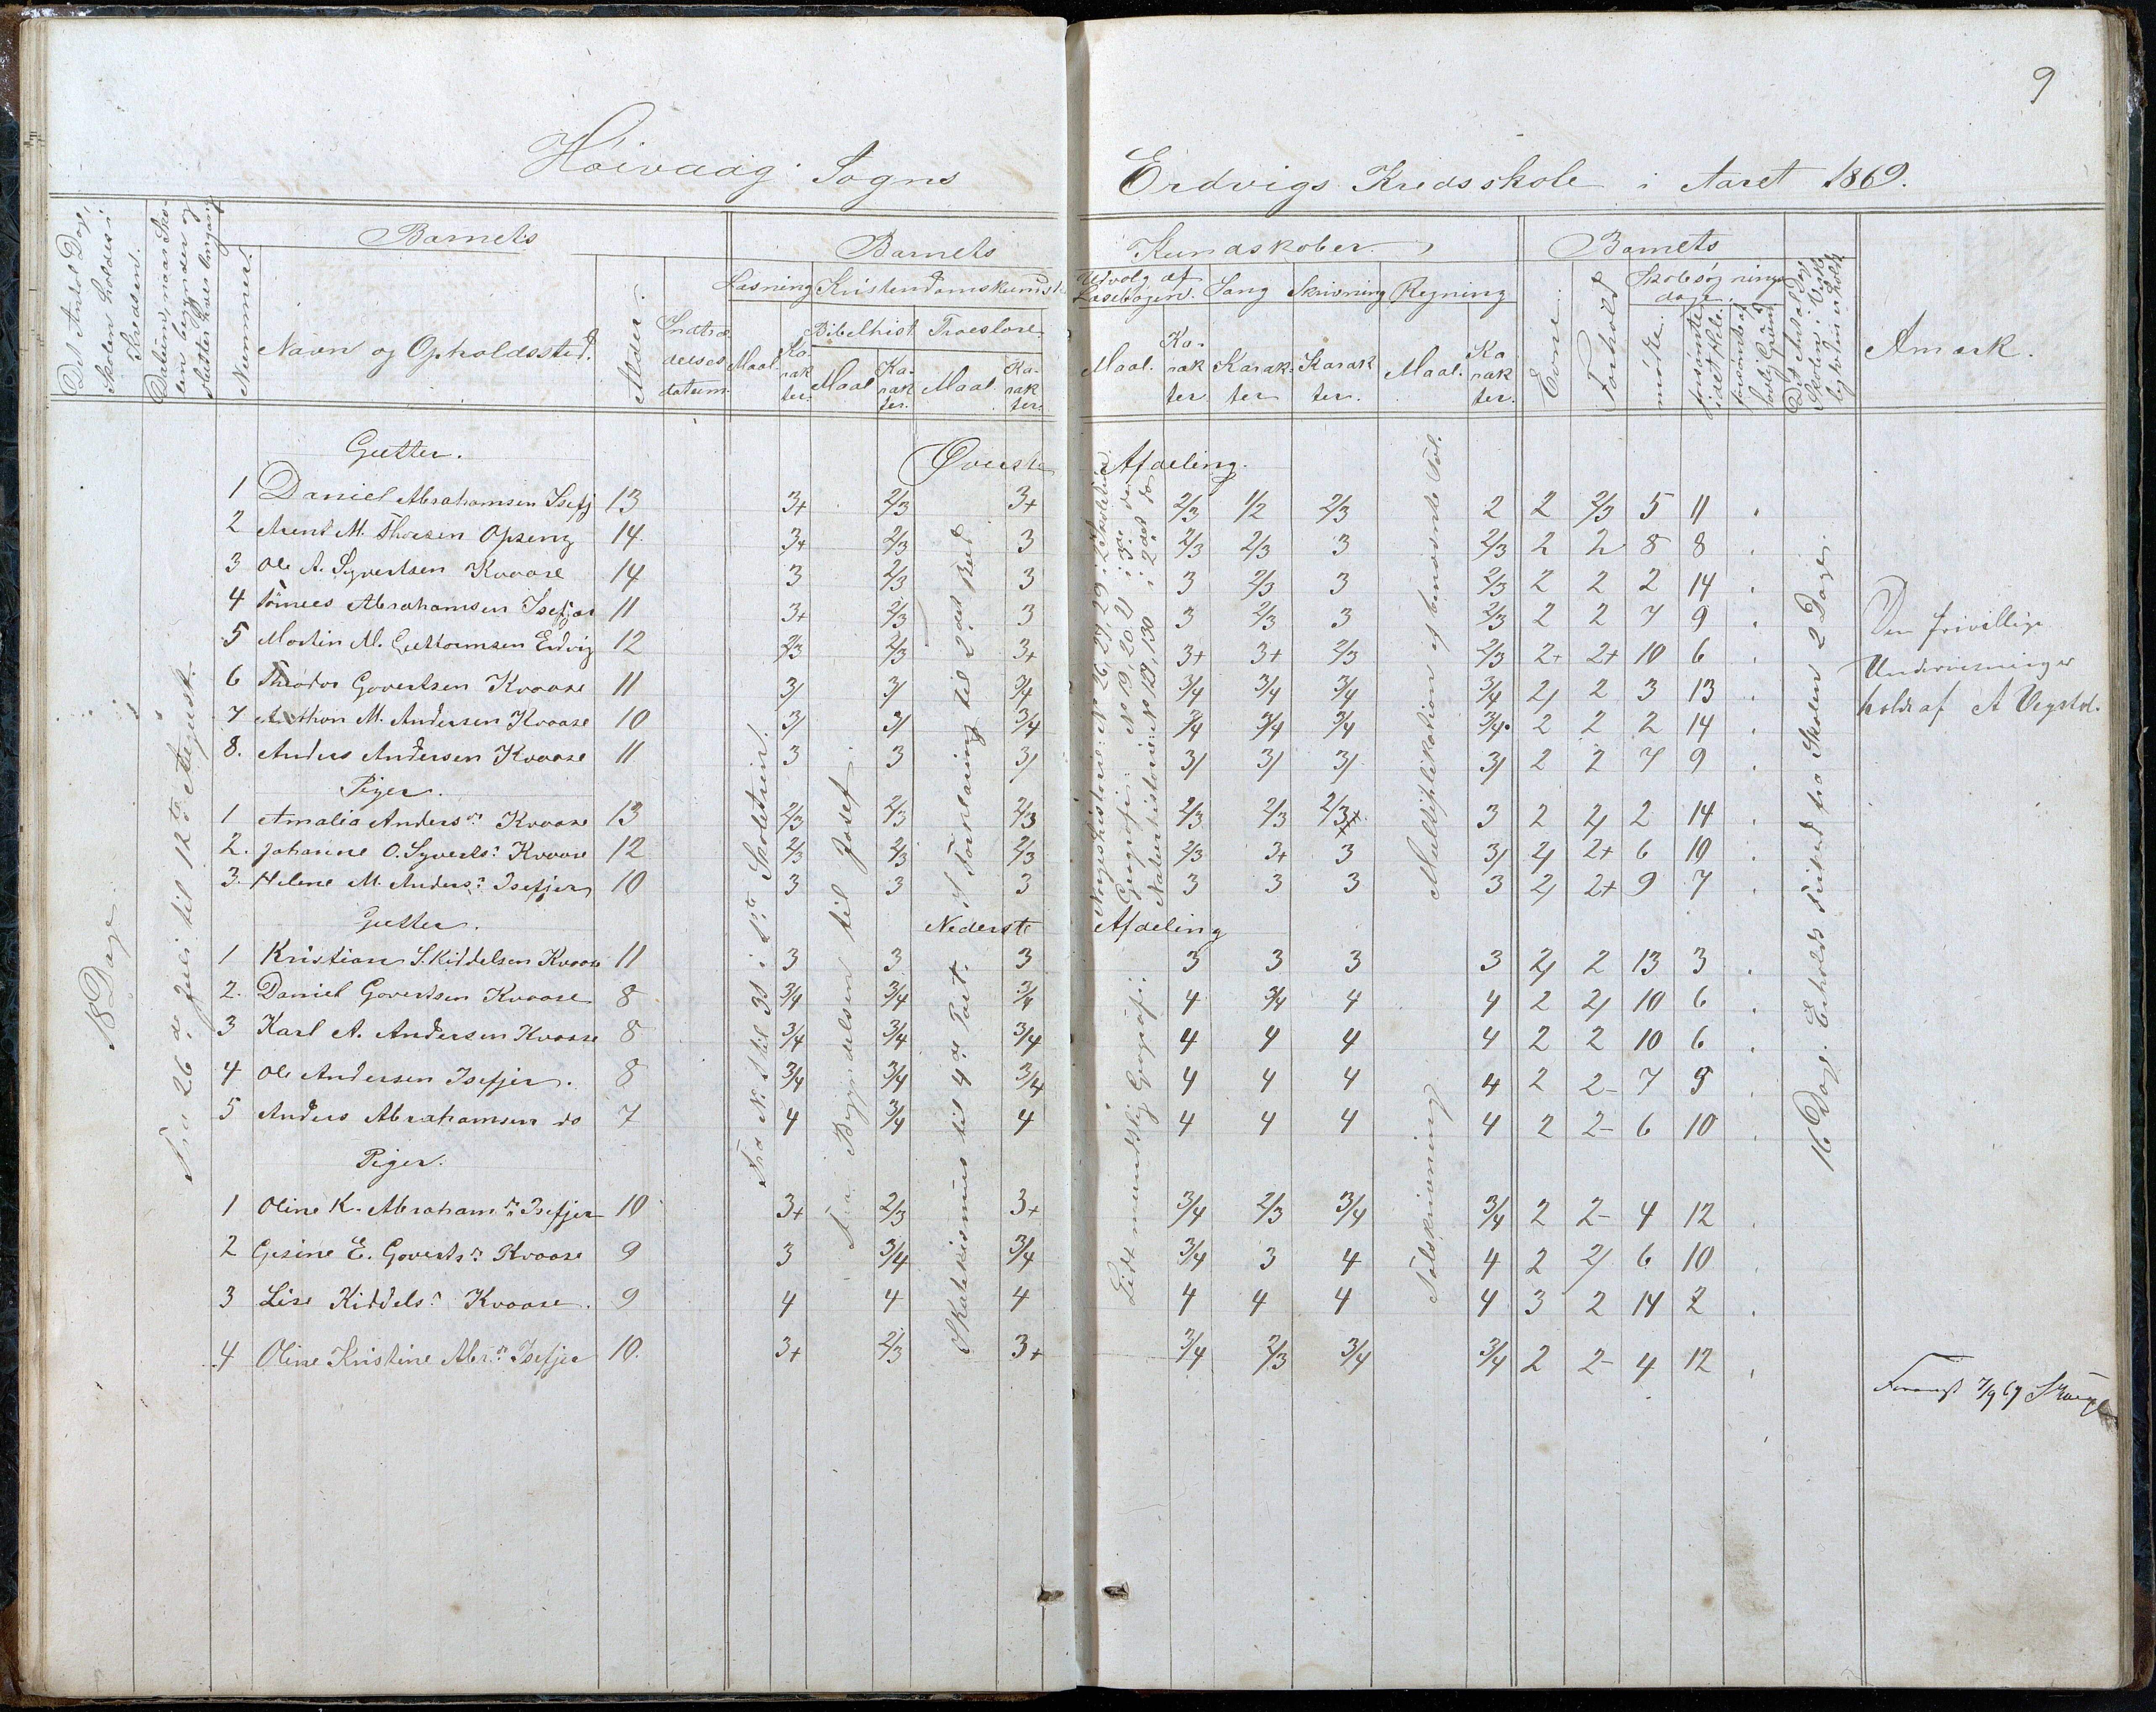 9
Höivaag Sogns Erdvigs Kredsskole i Aaret 1869.
Det Antal Dage, Skolen holdes i Kredsen.
Datum, naar Skolen begynder og slutter hver Omgang
Barnets
Nummer.
Navn og Opholdssted.
Alder.
Indtrædelsesdatum.
Barnets Kundskaber.
Læsning Kristendomskundsk
Maal. Karakter.
Bibelhist Troeslære
Maal Karakter. Maal. Karakter.
Udvalg af Læsebogen. Sang Skrivning Regning
Maal. Karakter Karakter Karakter. Maal. Karakter.
Barnets
Evne.
Forhold
Skolesøgningsdage.
mødte.
forsømte i det Hele.
forsømte af lovlig Grund
Det Antal Dage Skolen i Virkeligheden er holdt
Anmærk.
18 Dage
Fra 26de Juli til 12te August.
Fra No 1 til 31 i 1ste Skoletrin.
Fra Begyndelsen til Josef.
Forklaring til 2det Bud
Katekismus til 4de Part.
Geografi: No 19, 20, 21 i 3die do
Naturhistorie: No 129, 130 i 2det do
Multiplikation af benævnte Tal.
Lidt mundtlig Geografi.
Talskrivning
16 Dage. Enhold Fritid fra Skolen 2 Dage.
Gutter. Øverste Afdeling.
1 Daniel Abrahamsen Isefj 13 3+ 2/3 3+ 2/3 1/2 2/3 2 2 2/3 5 11
2 Arent M. Thorsen Opseng 14 3+ 2/3 3 2/3 2/3 3 2/3 2 2 8 8
3 Ole A. Syvertsen Kvaase 14 3 2/3 3 3 2/3 3 2/3 2 2 2 14
4 Tönnes Abrahamsen Isefjær 11 3+ 2/3 3 3 2/3 3 2/3 2 2 7 9
5 Martin M. Guttormsen Erdvig 12 2/3 2/3 3+ 3+ 3+ 2/3 2/3 2+ 2+ 10 6
6 Theodor Govertsen Kvaase 11 3/ 3/ 3/4 3/4 3/4 3/4 3/4 2/ 2 3 13
7 Anthon M. Andersen Kvaase 10 3/ 3/ 3/4 3/4 3/4 3/4 3/4 2 2 2 14
8. Anders Andersen Kvaase 11 3 3 3/ 3/ 3/ 3/ 3/ 2 2 7 9
Piger.
1 Amalia Andersn Kvaase 13 2/3 2/3 2/3 2/3 2/3 2/3+ 3 2 2/ 2 14
2. Johanne O. Syverts: Kvaase 12 2/3 2/3 2/3 2/3 3+ 3 3/ 2/ 2+ 6 10
3. Helene M. Anders: Isefjær 10 3 3 3 3 3 3 3 2/ 2+ 9 7
Gutter. Nederste Afdeling
1 Kristian S. Kiddelsen Kvaase 11 3 3 3 3 3 3 3 2/ 2 13 3
2. Daniel Govertsen Kvaase 8 3/4 3/4 3/4 4 3/4 4 4 2 2/ 10 6
3 Karl A. Andersen Kvaase 8 3/4 3/4 3/4 4 4 4 4 2 2 10 6
4 Ole Andersen Isefjær. 8 3/4 3/4 3/4 4 4 4 4 2 2- 7 9
5 Anders Abrahamsen do 7 4 3/4 4 4 4 4 4 2 2- 6 10
Piger.
1 Oline K. Abrahamsn Isefjær 10 3+ 2/3 3+ 3/4 2/3 3/4 3/4 2 2- 4 12
2 Gesine E. Govertsn Kvaase 9 3 3/4 3/4 3/4 3 4 4 2 2/ 6 10
3 Lise Kiddels: Kvaase. 9 4 4 4 4 4 4 4 3 2 14 2
4 Oline Kristine Abr.n Isefjær 10. 3+ 2/3 3+ 3/4 2/3 3/4 3/4 2 2- 4 12
Den frivillige
Undervisninger
holdt af A Vegstøl.
7/9 69